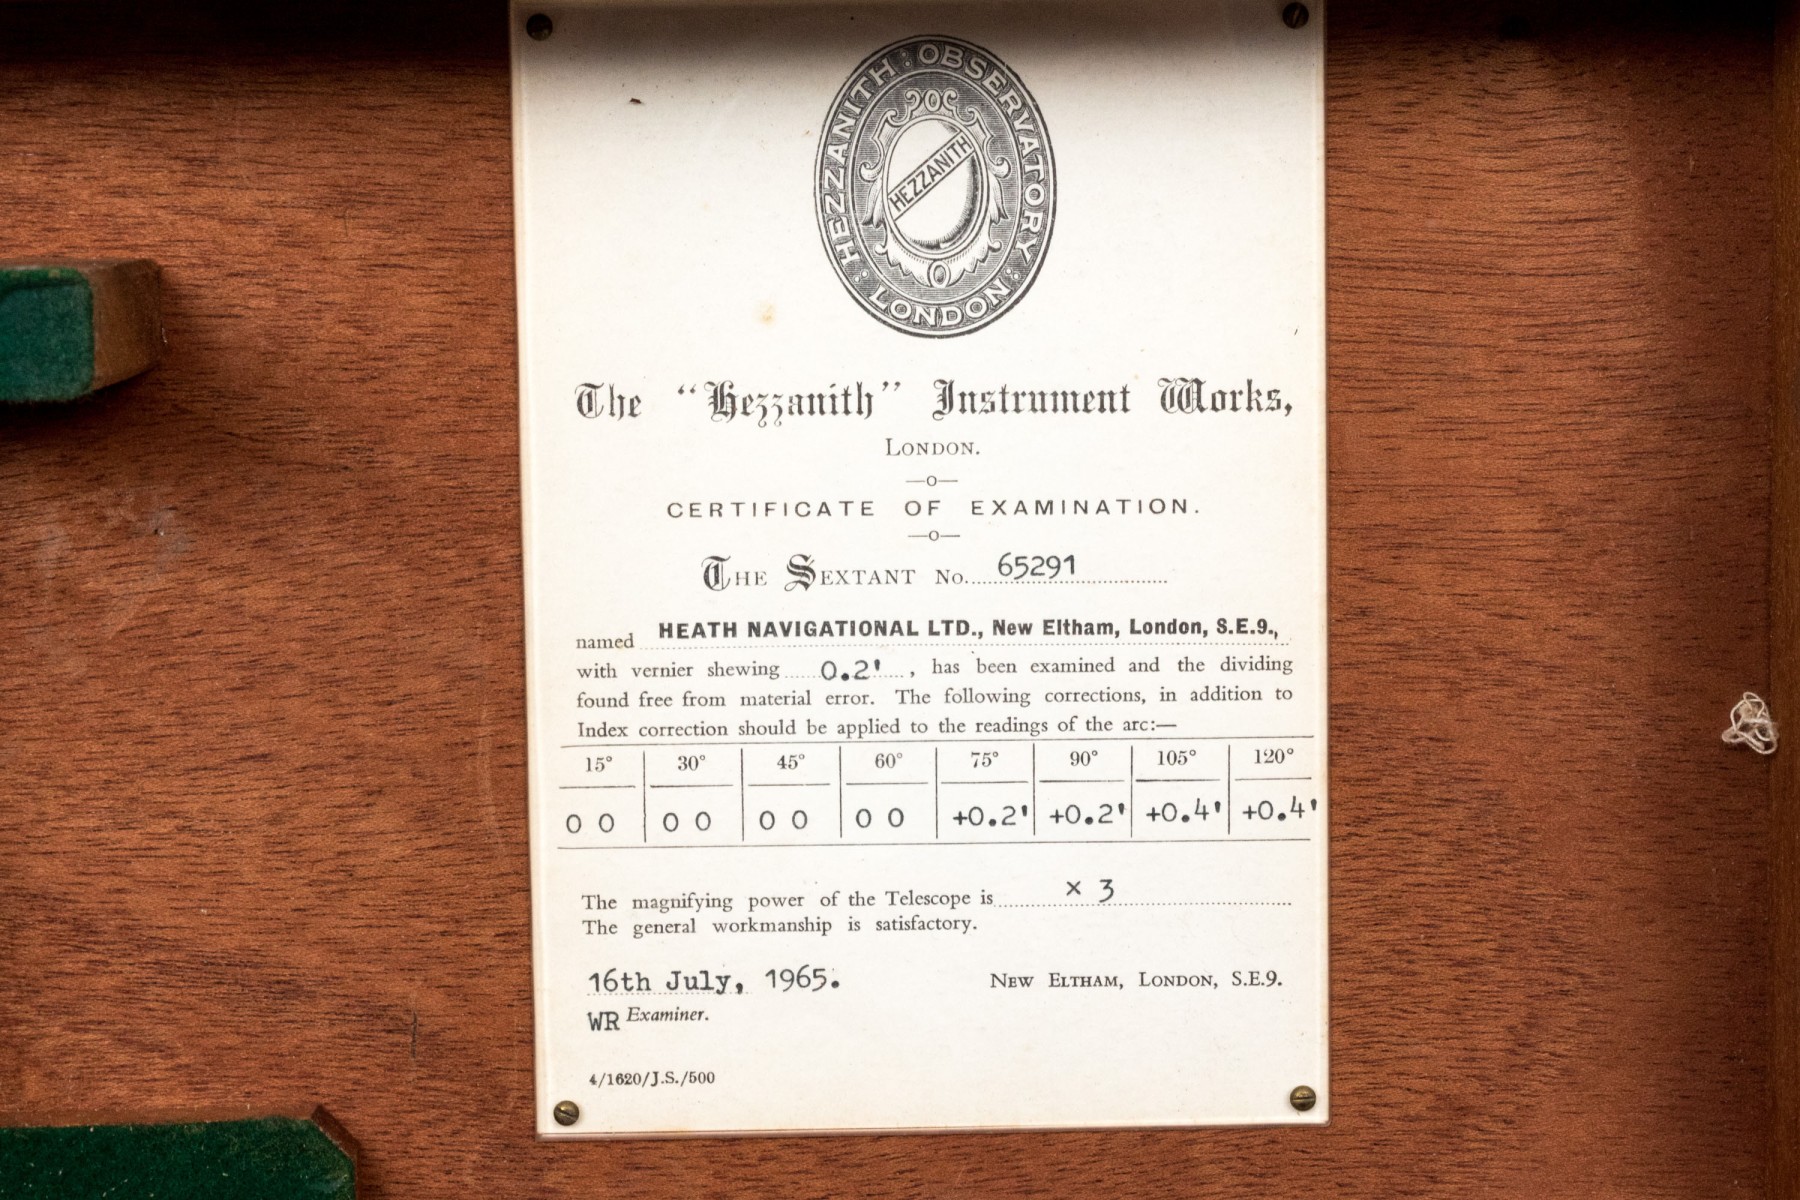 HEZZANITH : OBSERVATORY :
LONDON
HEZZANITH
The “Hezzanith” Instrument Works,
LONDON.
—o—
CERTIFICATE OF EXAMINATION.
—o—
THE SEXTANT No. 65291
named HEATH NAVIGATIONAL LTD., New Eltham, London, S.E.9.,
with vernier shewing 0.2', has been examined and the dividing
found free from material error. The following corrections, in addition to
Index correction should be applied to the readings of the arc:—
15° 30° 45° 60° 75° 90° 105° 120°
0 0 0 0 0 0 0 0 +0.2' +0.2' +0.4' +0.4'
The magnifying power of the Telescope is x 3
The general workmanship is satisfactory.
16th July, 1965. NEW ELTHAM, LONDON, S.E.9.
WR Examiner.
4/1620/J.S./500